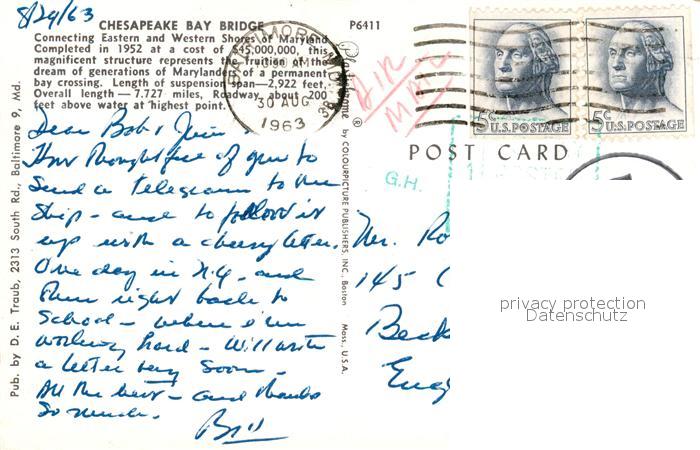 8/29/63
CHESAPEAKE BAY BRIDGE
Connecting Eastern and Western Shores of Maryland
Completed in 1952 at a cost of $45,000,000, this
magnificent structure represents the fruition of the
dream of generations of Marylanders of a permanent
bay crossing. Length of suspension span—2,922 feet.
Overall length — 7.727 miles. Roadway about 200
feet above water at highest point.
P6411
BALTIMORE, MD.
30 AUG
1963
AIR
MAIL
5¢ U.S. POSTAGE
5¢ U.S. POSTAGE
POST CARD
G.H.
Dear Bob &
How thoughtful of you to
send a telegram to the
ship - and to follow it
up with a cheery letter.
One day in N.Y. and
then right back to
school - where I'm
working hard - Will write
a letter very soon -
All the best - and thanks
so much.
Bill
Pub. by D. E. Traub, 2313 South Rd., Baltimore 9, Md.
® by COLOURPICTURE PUBLISHERS, INC., Boston Mass., U.S.A.
Mr. Ro
145
Beck
Eng
privacy protection
Datenschutz